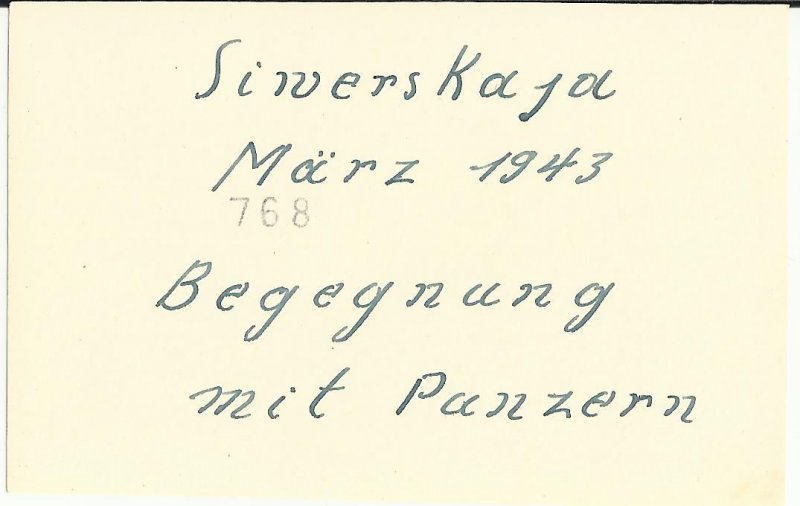 Siwerskaja
März 1943
768
Begegnung
mit Panzern